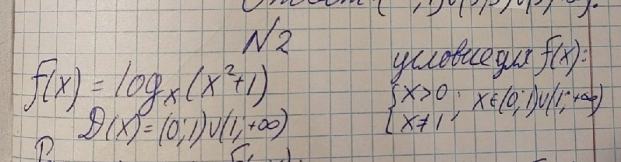 N2
f(x) = log_x(x²+1)
D(x) = (0; 1)∪(1; +∞)
условие для f(x):
{x>0
{x≠1; x∈(0; 1)∪(1; +∞)